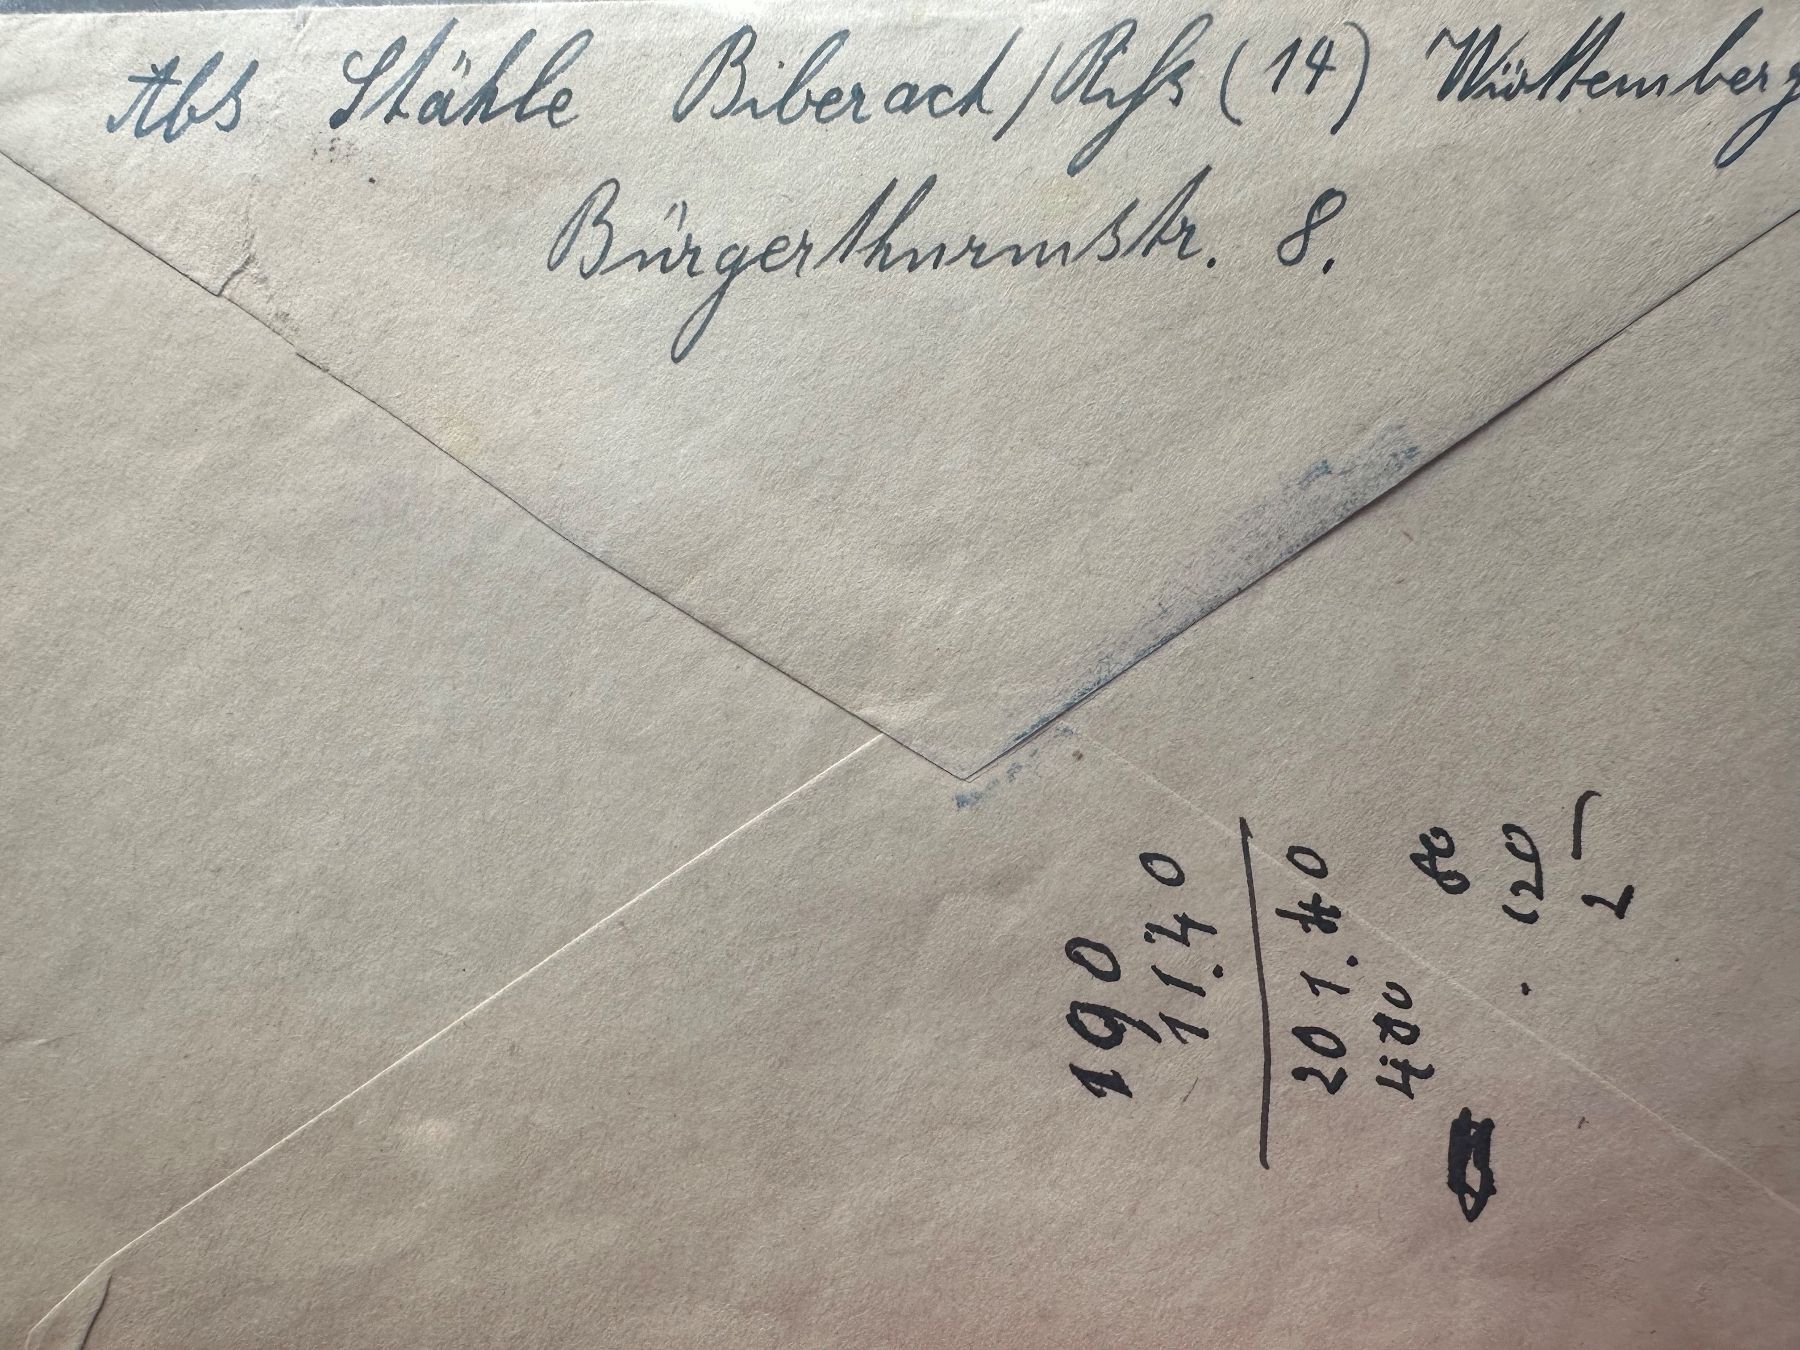 Abs Stähle Biberach/Riß (14) Württemberg
Bürgerthurmstr. 8.
190
11.40
201.40
480
60
120